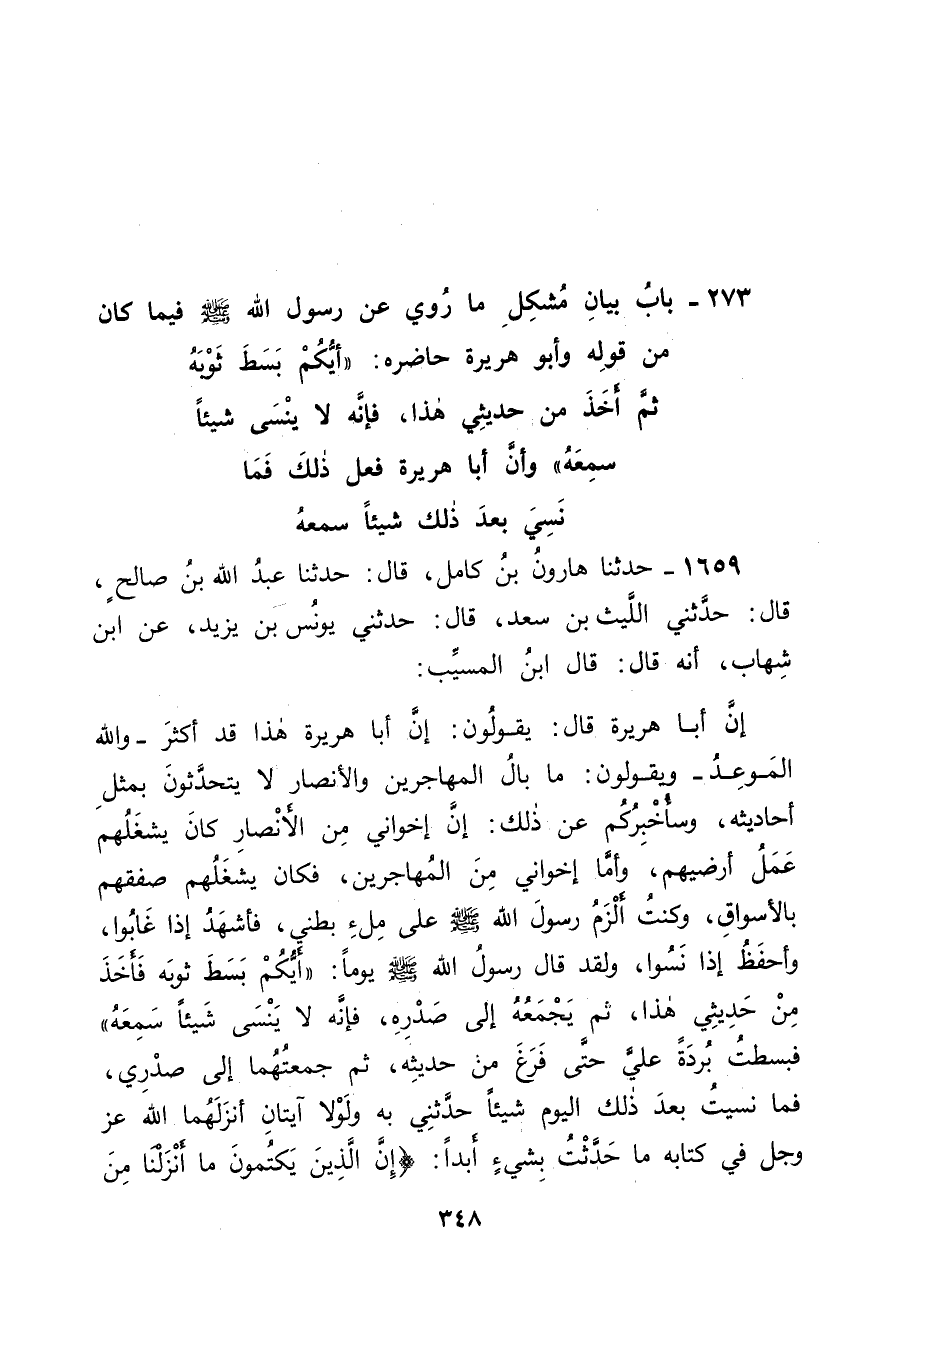 ٢٧٣ ـ بابُ بيانِ مُشكِلِ ما رُوي عن رسول الله ﷺ فيما كان
من قولِه وأبو هريرة حاضره: «أيُّكُمْ بَسَطَ ثَوْبَهُ
ثمَّ أَخَذَ من حديثِي هٰذا، فإنَّه لا ينْسَى شيئاً
سمِعَهُ» وأنَّ أبا هريرة فعل ذٰلكَ فَمَا
نَسِيَ بعدَ ذٰلك شيئاً سمعهُ
١٦٥٩ ـ حدثنا هارونُ بنُ كامل، قال: حدثنا عبدُ الله بنُ صالحٍ،
قال: حدَّثني اللَّيث بن سعد، قال: حدثني يونُس بن يزيد، عن ابن
شِهاب، أنه قال: قال ابنُ المسيِّب:
إنَّ أبا هريرة قال: يقولُون: إنَّ أبا هريرة هٰذا قد أكثرَ ـ والله
المَوعِدُ ـ ويقولون: ما بالُ المهاجرين والأنصار لا يتحدَّثونَ بمثلِ
أحاديثه، وسأُخْبِرُكُم عن ذٰلك: إنَّ إخواني مِن الأَنْصارِ كانَ يشغَلُهم
عَمَلُ أرضيهم، وأمَّا إخواني مِنَ المُهاجرين، فكان يشغَلُهم صفقهم
بالأسواقِ، وكنتُ أَلْزَمُ رسولَ الله ﷺ على مِلءِ بطني، فأشهَدُ إذا غَابُوا،
وأحفَظُ إذا نَسُوا، ولقد قال رسولُ الله ﷺ يوماً: «أَيُّكُمْ بَسَطَ ثوبَه فَأَخَذَ
مِنْ حَدِيثِي هٰذا، ثم يَجْمَعُهُ إلى صَدْرِهِ، فإنَّه لا يَنْسَى شَيئاً سَمِعَهُ»
فبسطتُ بُردَةً عليَّ حتَّى فَرَغَ من حديثِه، ثم جمعتُهُما إلى صدْرِي،
فما نسيتُ بعدَ ذٰلك اليوم شيئاً حدَّثنِي به ولَوْلا آيتانِ أنزَلَهُما الله عز
وجل في كتابه ما حَدَّثْتُ بِشيءٍ أَبداً: ﴿إنَّ الَّذِينَ يَكتُمونَ ما أَنْزَلْنَا مِنَ
٣٤٨